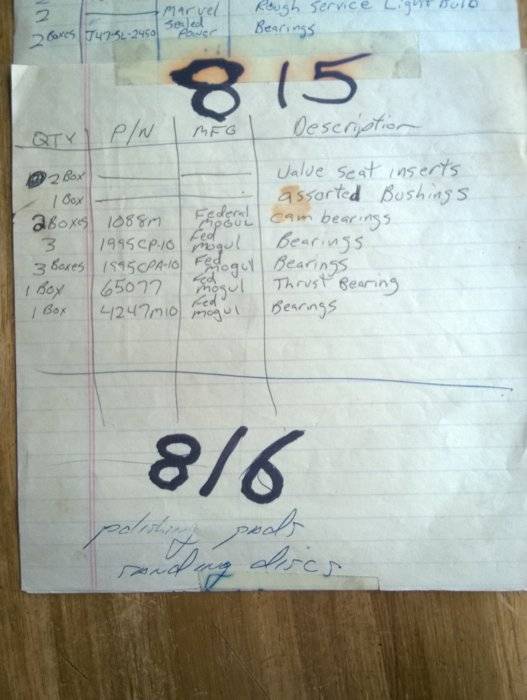 2 Marvel Rough Service Light Bulb
2 Boxes Sealed Power Bearings
815
QTY P/N MFG Description
2 Box Valve Seat inserts
1 Box assorted Bushings
2 Boxes 1088M Federal Mogul cam bearings
3 1995CP-10 Fed Mogul Bearings
3 Boxes 1995CPA-10 Fed Mogul Bearings
1 Box 65077 Fed Mogul Thrust Bearing
1 Box 4247M10 Fed Mogul Bearings
816
polishing pads
sanding discs